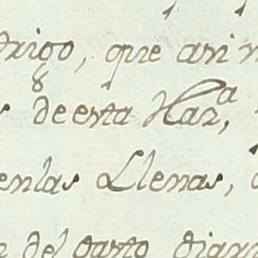 trigo, que asi
de esta Haz.ª,
enlas Llenas,
del gasto diar